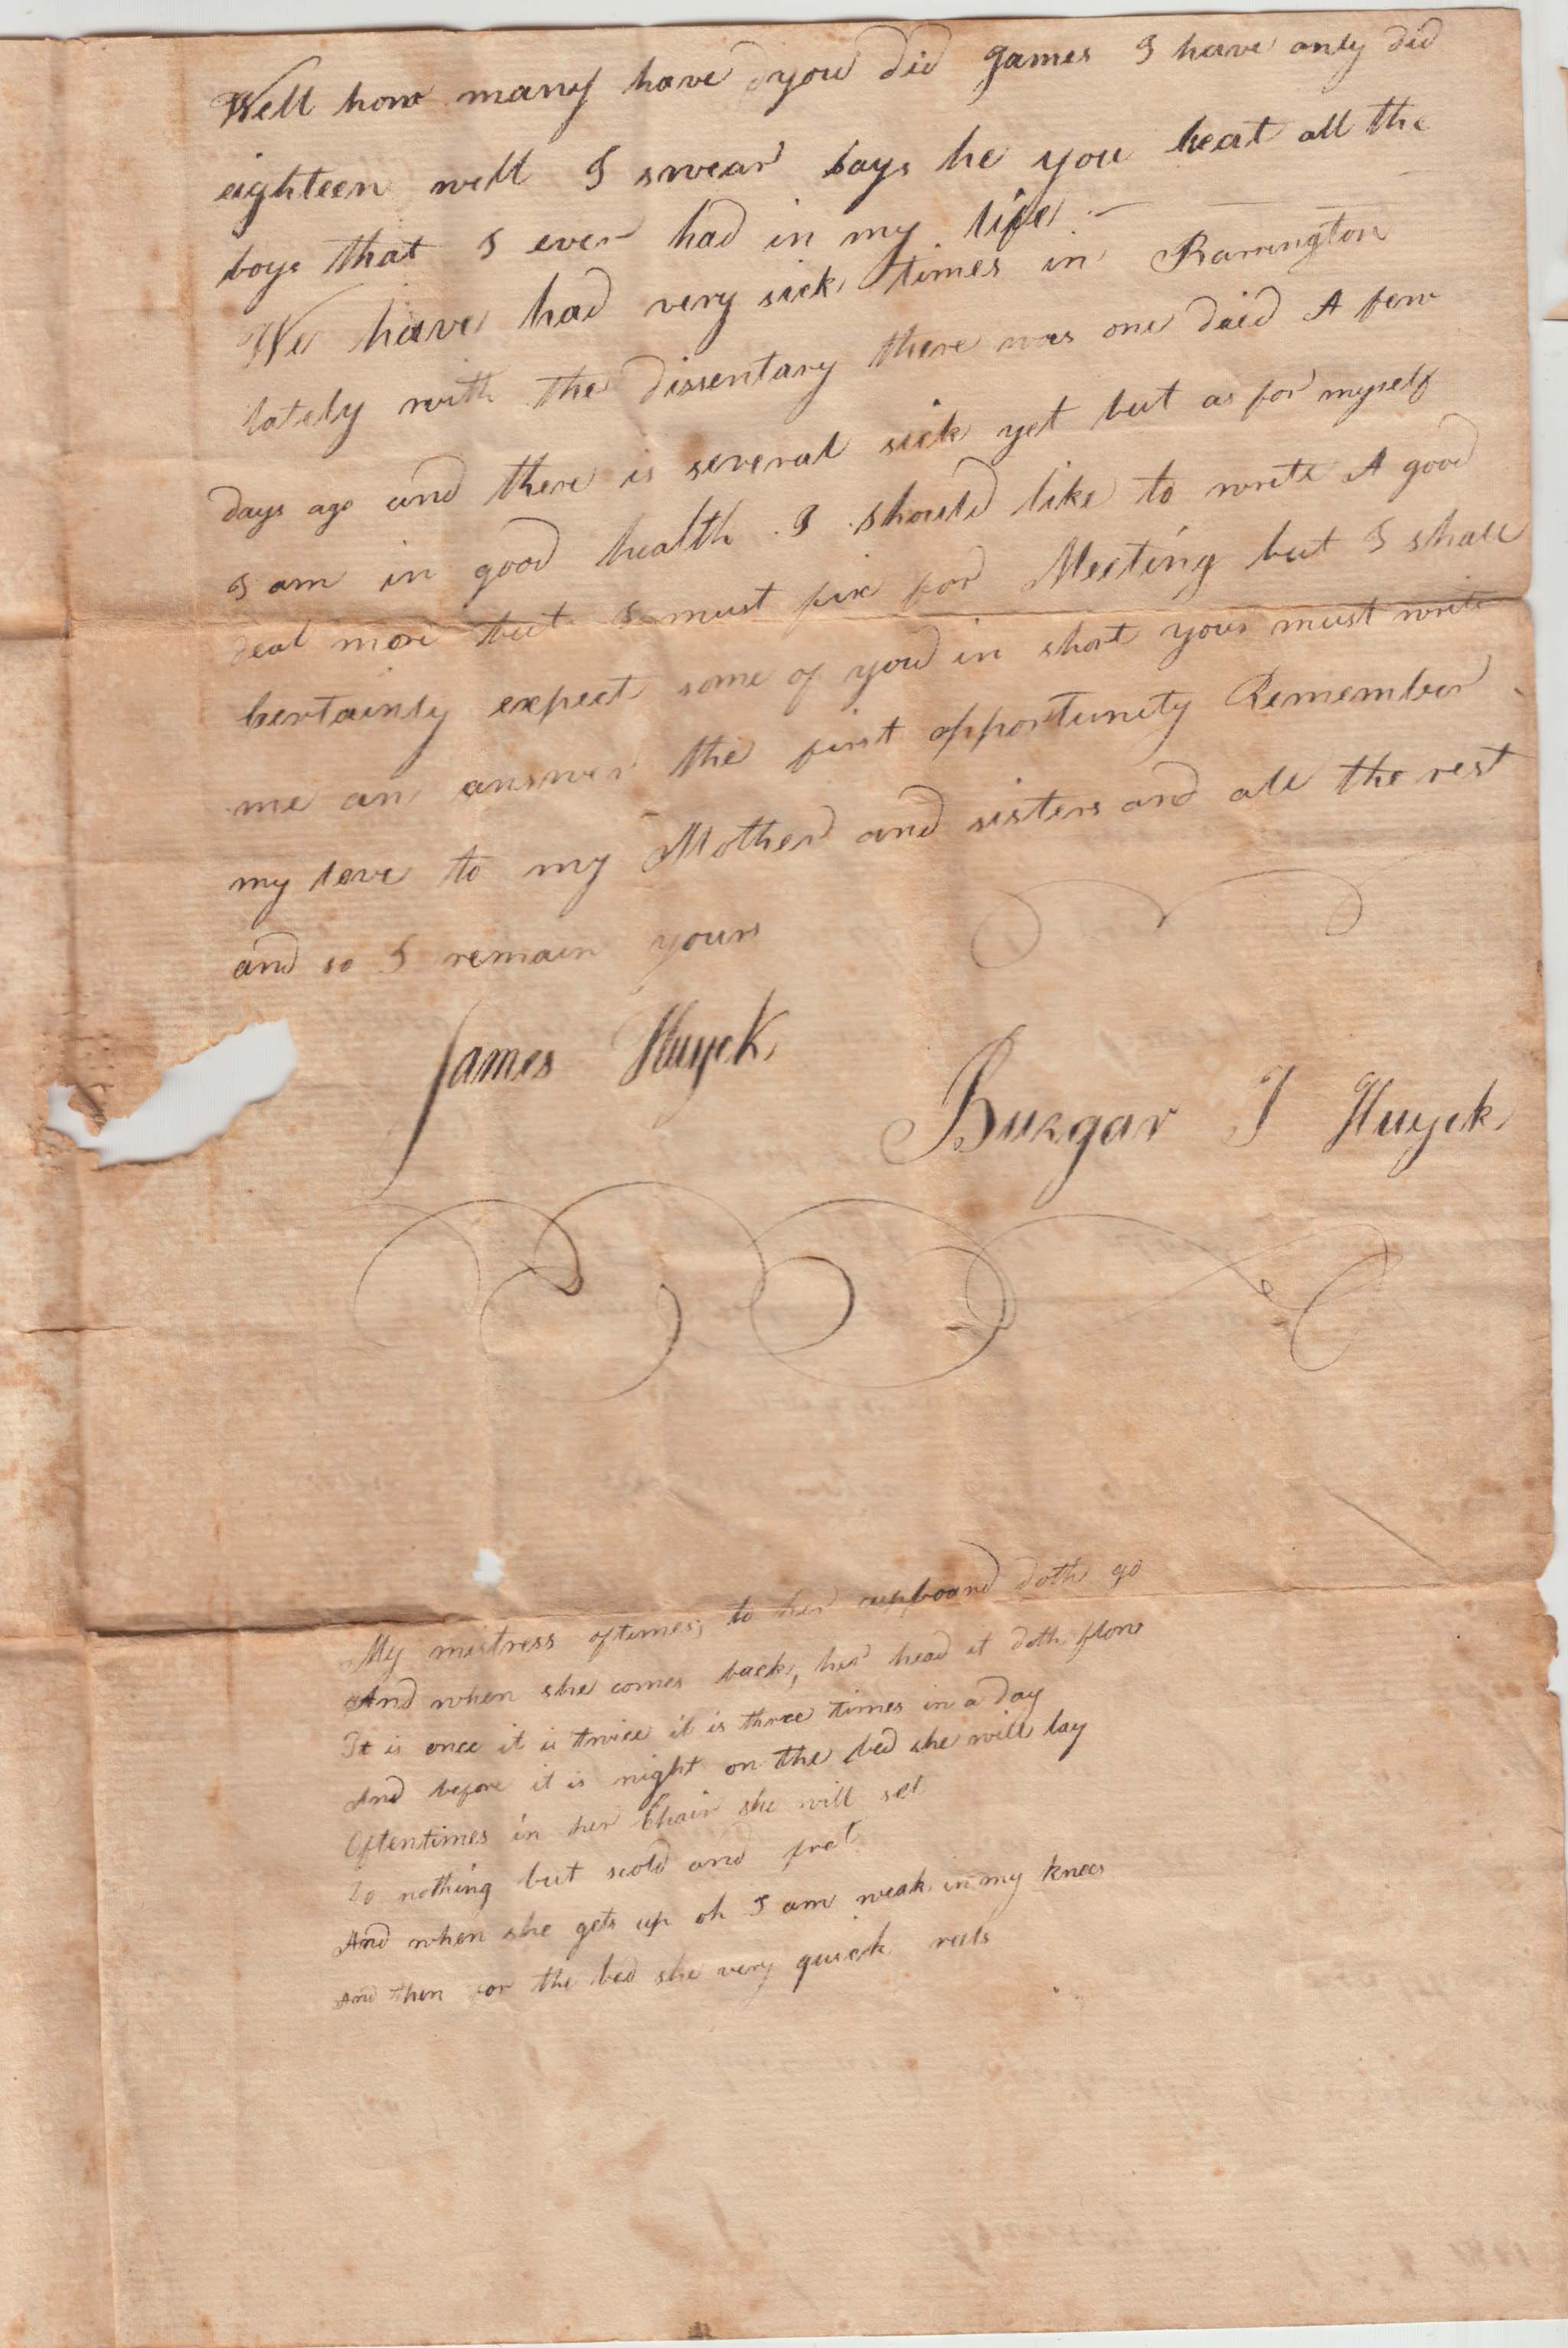 Well how many have you did James I have only did
eighteen well I swear says he you beat all the
boys that I ever had in my life. —
We have had very sick times in Barrington
lately with the dissentary there was one died A few
days ago and there is several sick yet but as for myself
I am in good health. I should like to write A good
deal more but I must fix for Meeting but I shall
Certainly expect some of you in short your must write
me an answer the first opportunity Remember
my love to my Mother and sisters and all the rest
and so I remain yours
James Huyck
Burgar I Huyck
My mistress oftimes, to her cupboard doth go
And when she comes back, her head it doth flow
It is once it is twice it is three times in a day
And before it is night on the bed she will lay
Oftentimes in her Chair she will set
Do nothing but scold and fret
And when she gets up oh I am weak in my knees
And then for the bed she very quick reels